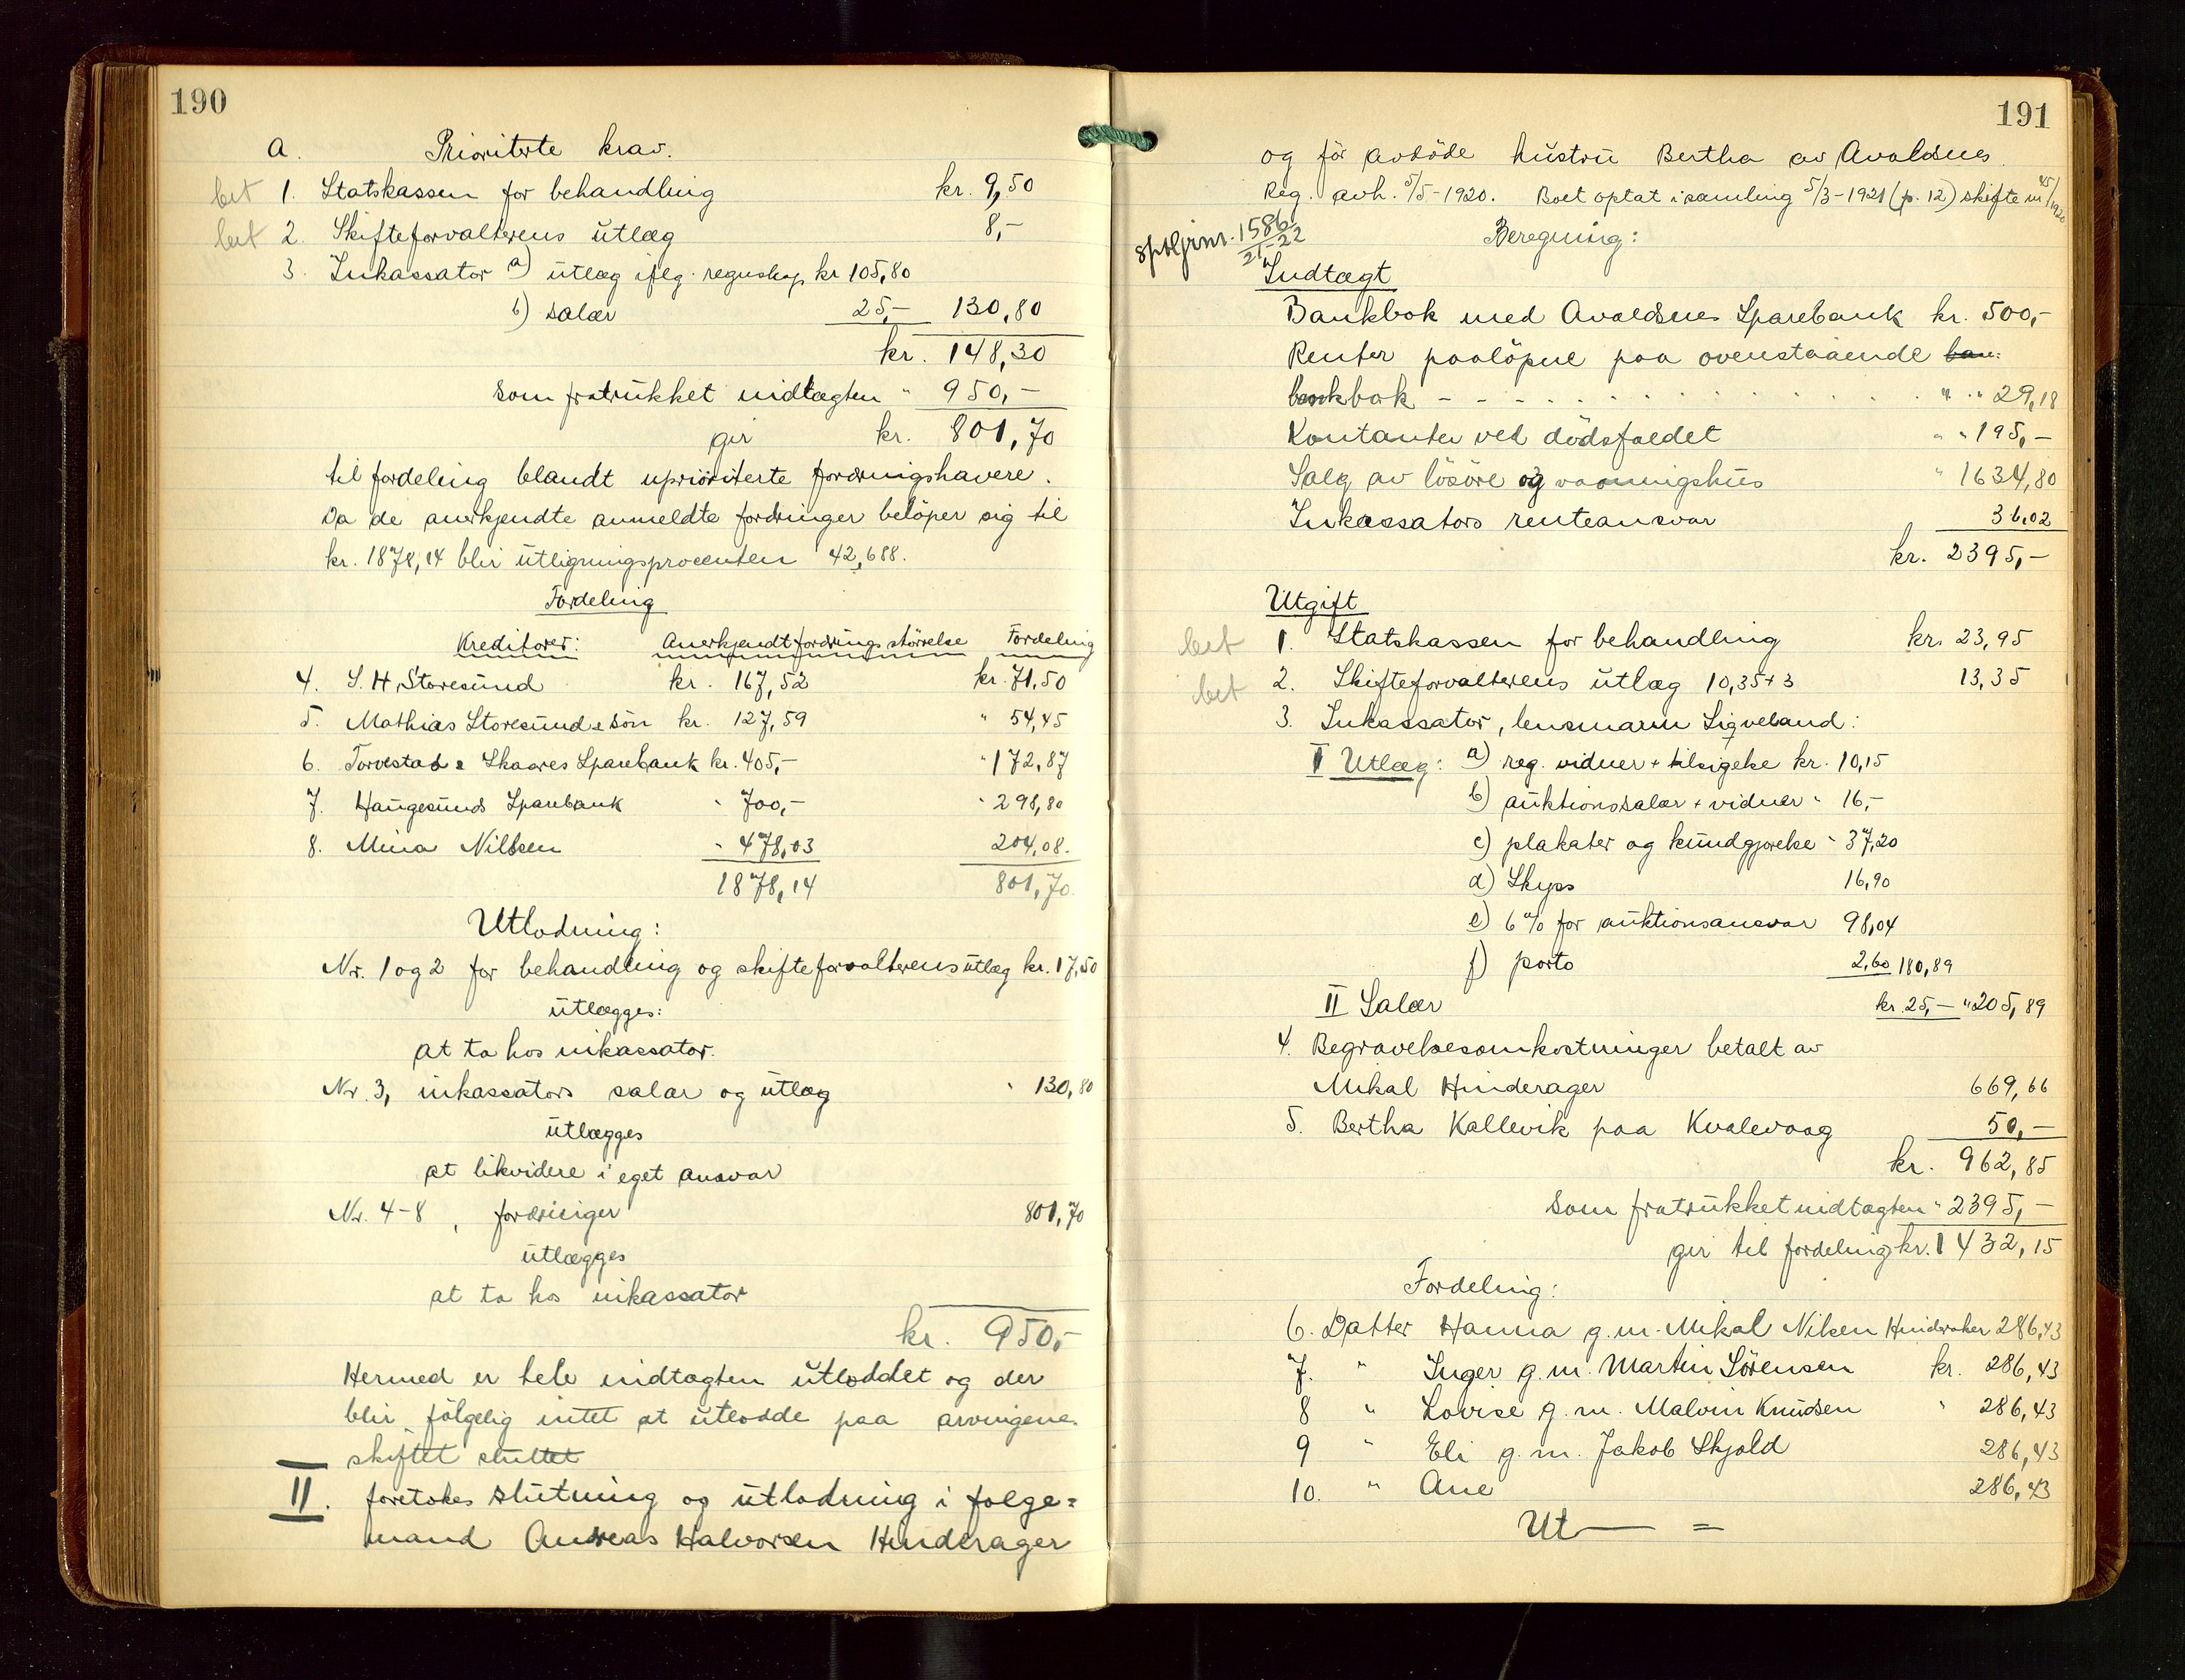 190
a. Prioriterte krav.
bet 1. Statskassen for behandling kr. 9,50
bet 2. Skifteforvalterens utlæg 8,-
3. Inkassator a) utlæg iflg. regnskap kr 105,80
b) salær 25,- 130,80
kr. 148,30
som fratrukket indtægten " 950,-
gir kr. 801,70
til fordeling blandt uprioriterte fordringshavere.
Da de anerkjendte anmeldte fordringer beløper sig til
kr. 1878,14 blir utligningsprocenten 42,688.
Fordeling
Kreditorer: Anerkjendt fordrings størrelse Fordeling
4. S. H. Storesund kr. 167,52 kr. 71,50
5. Mathias Storesund & Søn kr. 127,59 " 54,45
6. Torvestad & Skaares Sparebank kr. 405,- " 172,87
7. Haugesunds Sparebank " 700,- " 298,80
8. Mina Nilsen " 478,03 204,08.
1878,14 801,70.
Utlodning:
Nr. 1 og 2 for behandling og skifteforvalterens utlæg kr. 17,50
utlægges:
at ta hos inkassator.
Nr. 3, inkassators salær og utlæg " 130,80
utlægges
at likvidere i eget ansvar
Nr. 4-8, fordringer 801,70
utlægges
at ta hos inkassator
kr. 950,-
Hermed er hele indtægten utloddet og der
blir følgelig intet at utlodde paa arvingene.
skiftet sluttet
II. foretokes slutning og utlodning i folge=
mand Andreas Halvorsen Hinderager
191
og før avdöde hustru Bertha av Avaldsnes.
Reg. avh. 5/5-1920. Boet optat i samling 5/3-1921 (p. 12) skifte nr 45/1920
sptljrnr. 1586/21-22 Beregning:
Indtægt
Bankbok med Avaldsnes Sparebank kr. 500,-
Renter paaløpne paa ovenstaaende ban:
bankbok - - - . . . . . . " " 29,18
Kontanter ved dødsfaldet " " 195,-
Salg av løsøre og vaaningshus " 1634,80
Inkassators renteansvar 36,02
kr. 2395,-
Utgift
bet 1. Statskassen for behandling kr. 23,95
bet 2. Skifteforvalterens utlæg 10,35+3 13,35
3. Inkassator, lensmann Sigveland:
I Utlæg: a) reg. vidner + tilsigelse kr. 10,15
b) auktionssalær + vidner " 16,-
c) plakater og kundgjørelse " 37,20
d) Skyss 16,90
e) 6% for auktionsansvar 98,04
f) porto 2,60 180,89
II Salær kr. 25,- " 205,89
4. Begravelsesomkostninger betalt av
Mikal Hinderager 669,66
5. Bertha Kallevik paa Kvalevaag 50,-
kr. 962,85
som fratrukket indtægten " 2395,-
gir til fordeling kr. 1432,15
Fordeling:
6. Datter Hanna g. m. Mikal Nilsen Hinderaker 286,43
7. " Inger g. m. Martin Sørensen kr. 286,43
8 " Lovise g. m. Malvin Knudsen " 286,43
9 " Eli g. m. Jakob Skjold 286,43
10. " Ane 286,43
Ut— =